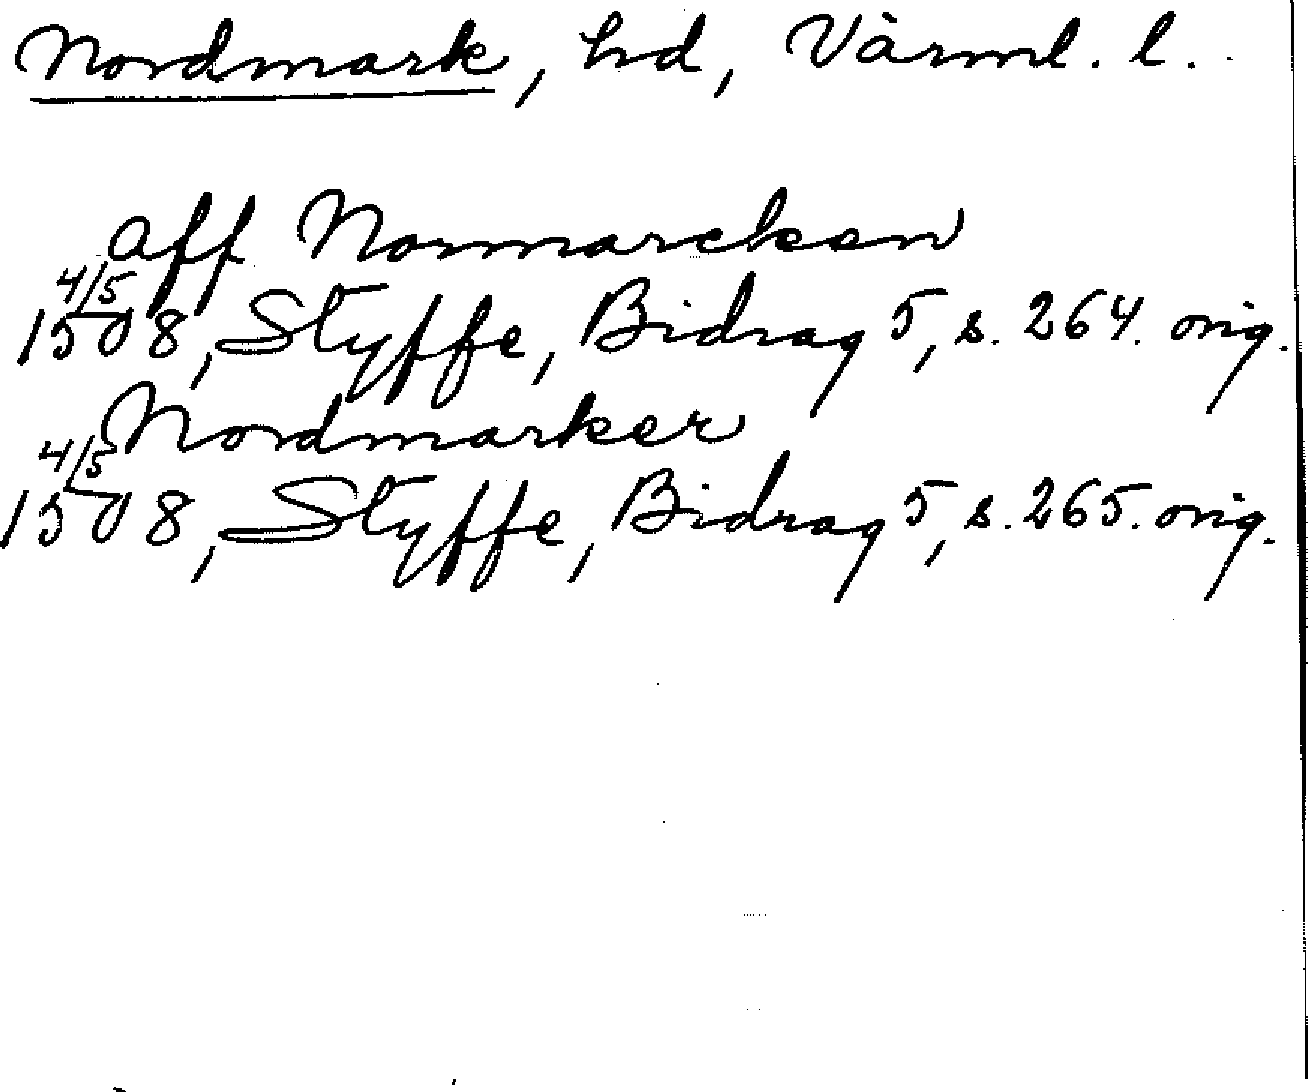 Nordmark, hd, Värml. l.
aff Normarcken
4/5
1508, Styffe, Bidrag 5, s. 264. orig.
Nordmarker
4/5
1508, Styffe, Bidrag 5, s. 265. orig.